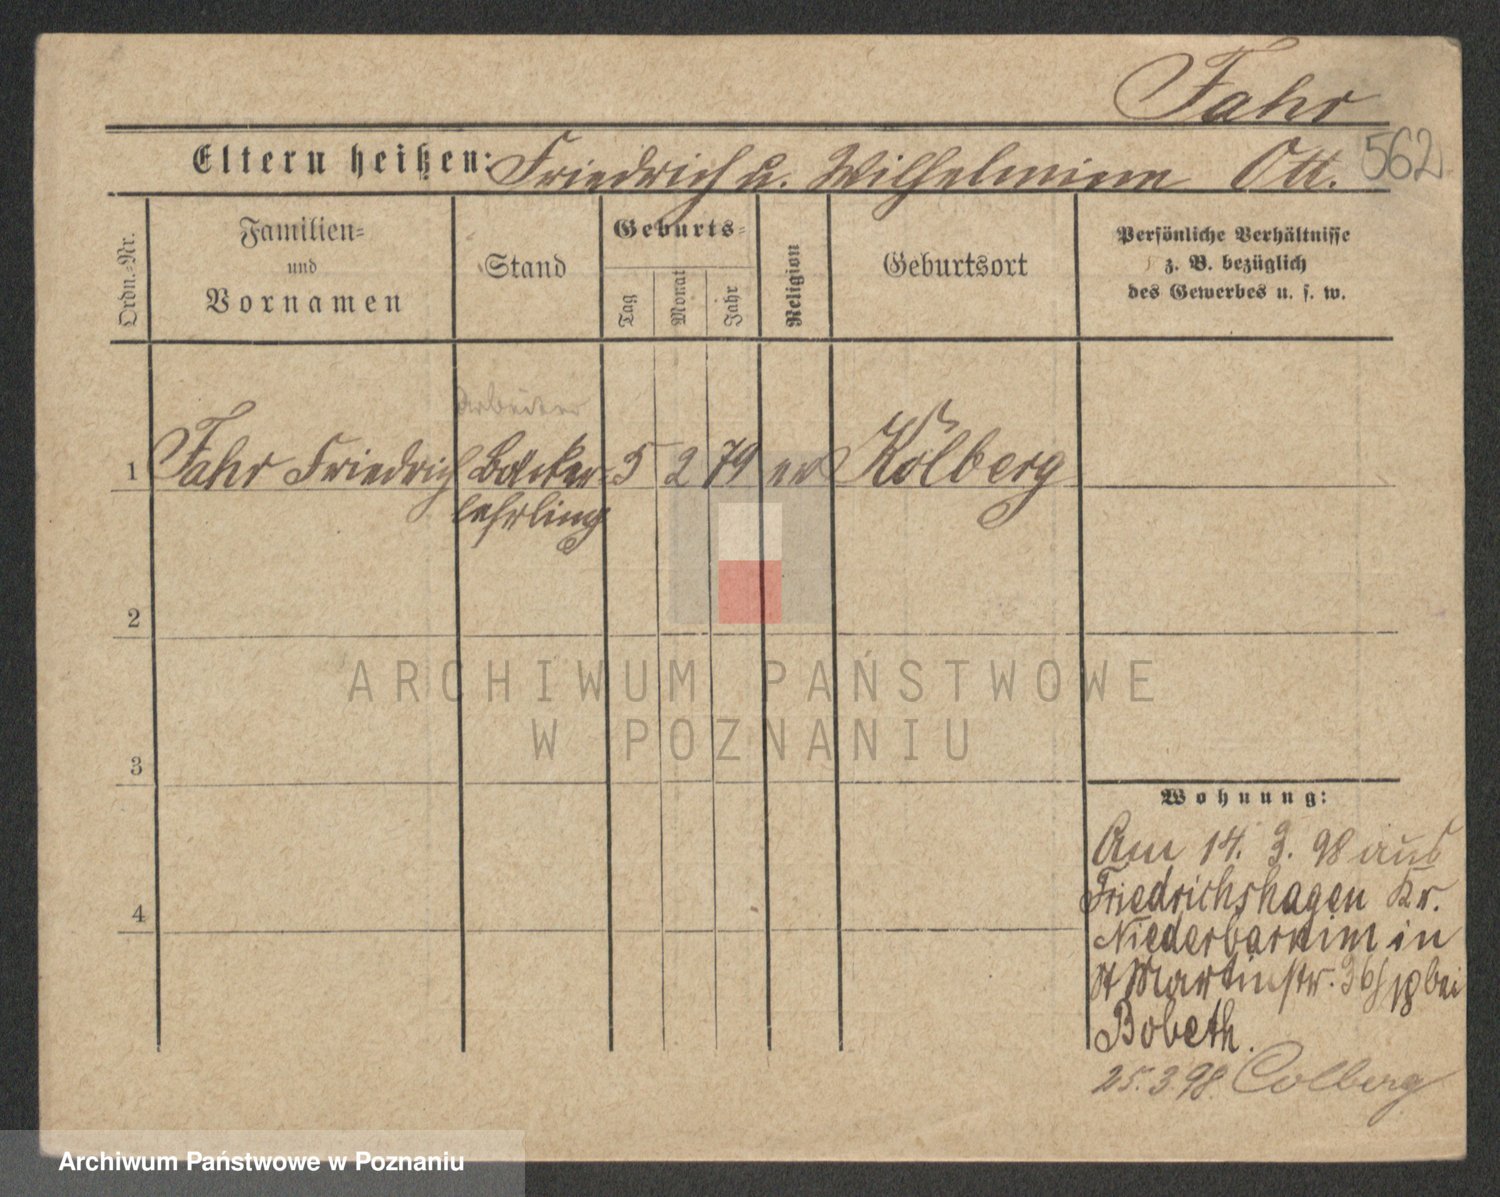 Fahr
562
Eltern heißen: Friedrich u. Wilhelmine Ott.
Ordn.-Nr.
Familien-
und
Vornamen
Stand
Geburts-
Tag
Monat
Jahr
Religion
Geburtsort
Persönliche Verhältnisse
z. B. bezüglich
des Gewerbes u. s. w.
Arbeiter
1 Fahr Friedrich Bäcker- 5 2 79 ev Kolberg
lehrling
2
3
4
Wohnung:
Am 14. 3. 98 aus
Friedrichshagen Kr.
Niederbarnim in
St Martinstr. bei
Bobeth.
25.3.98. Colberg
ARCHIWUM PAŃSTWOWE
W POZNANIU
Archiwum Państwowe w Poznaniu